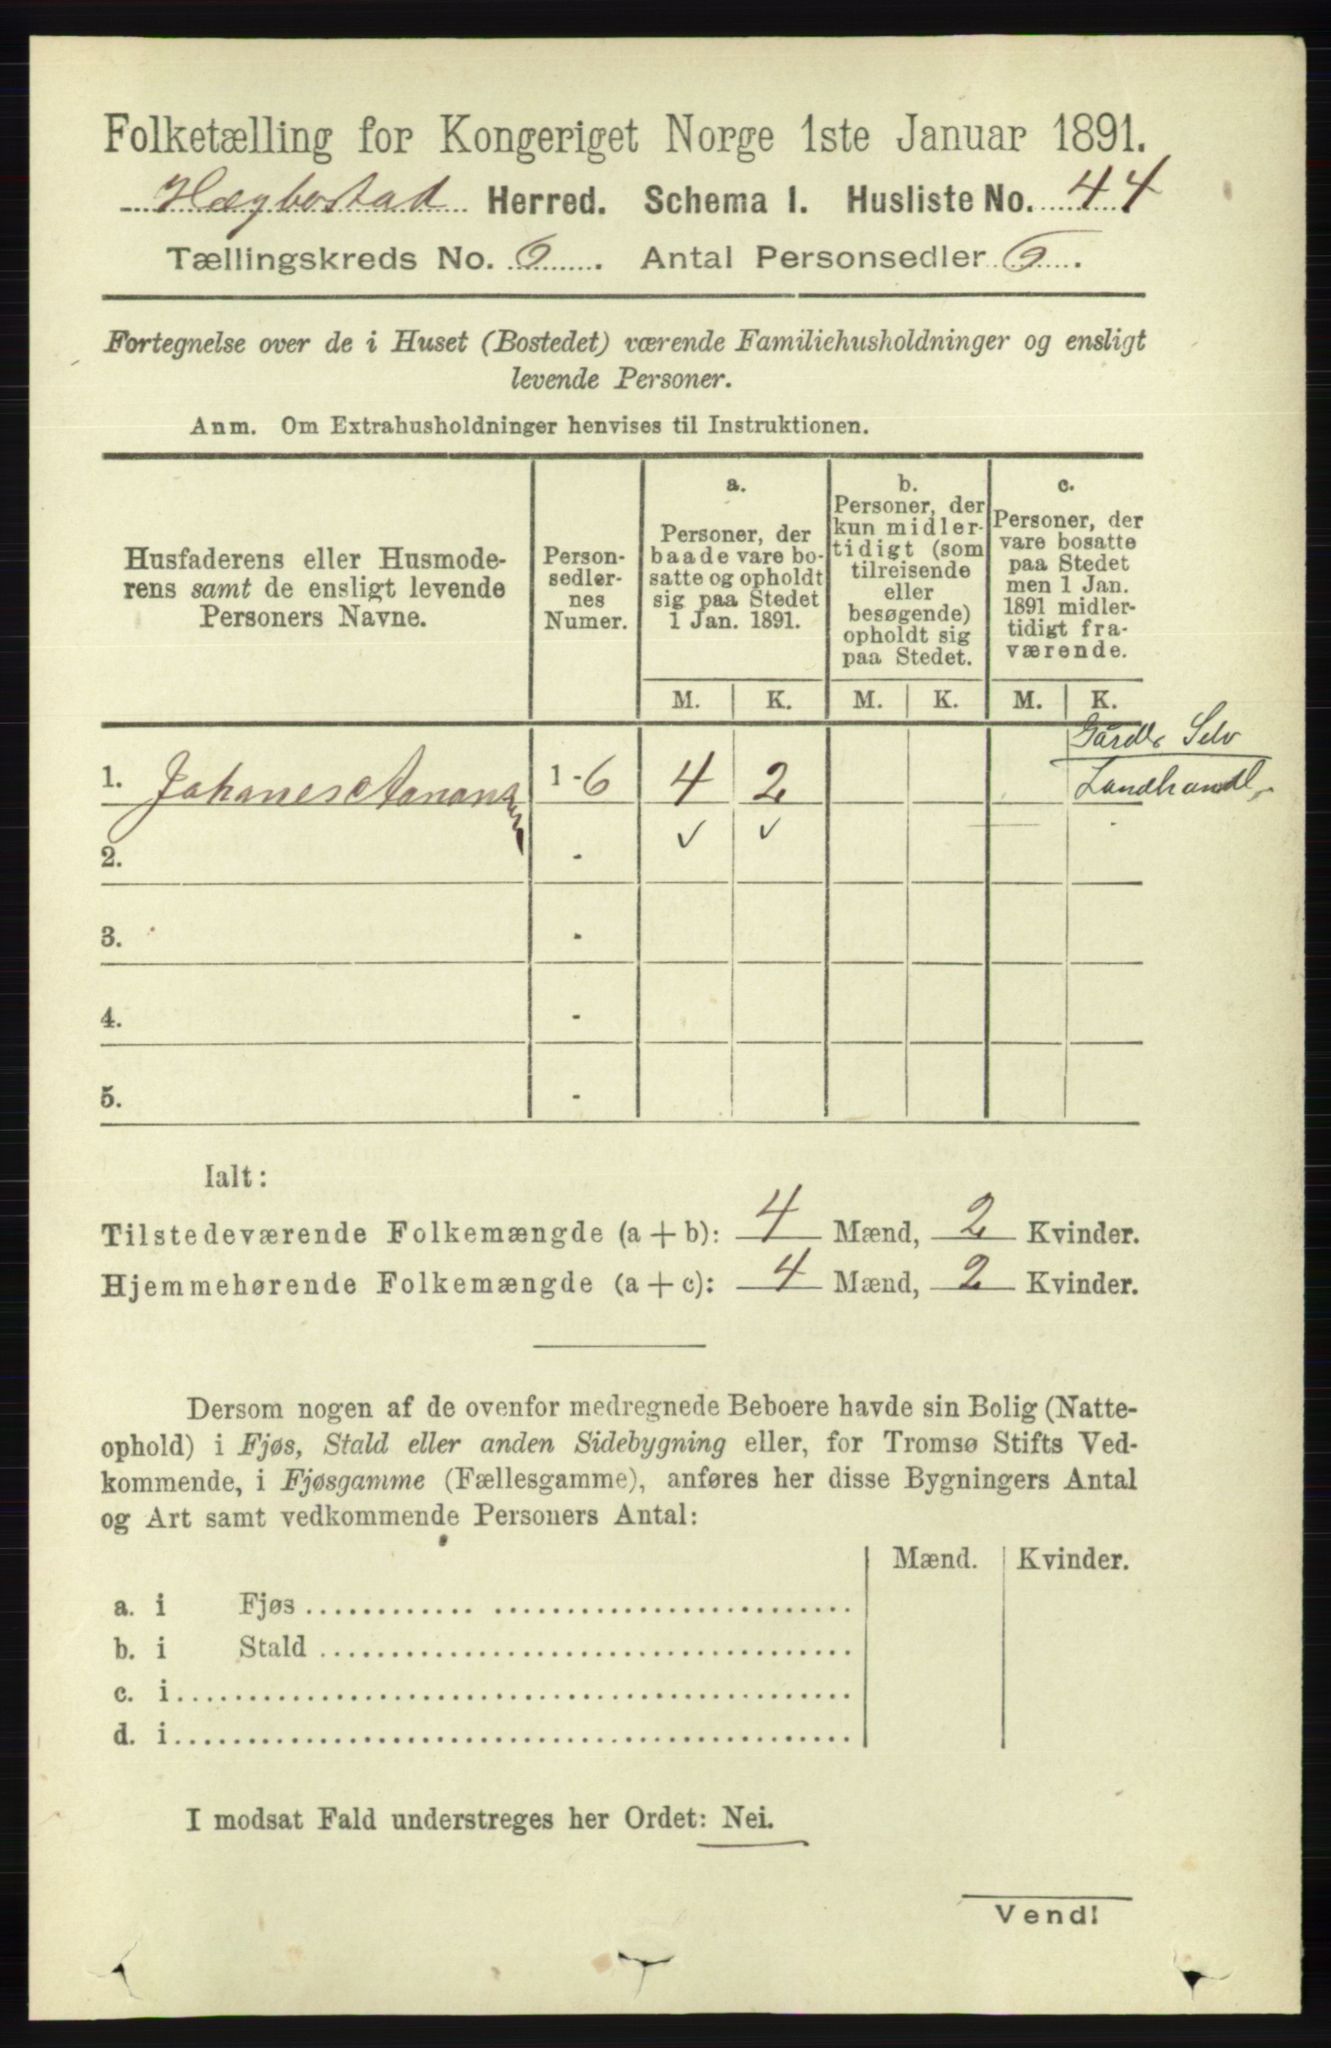 Folketælling for Kongeriget Norge 1ste Januar 1891.
Hægbostad Herred. Schema I. Husliste No. 44
Tællingskreds No. 6. Antal Personsedler 6.
Fortegnelse over de i Huset (Bostedet) værende Familiehusholdninger og ensligt
levende Personer.
Anm. Om Extrahusholdninger henvises til Instruktionen.
Husfaderens eller Husmode-
rens samt de ensligt levende
Personers Navne.
Person-
sedler-
nes
Numer.
a.
Personer, der
baade vare bo-
satte og opholdt
sig paa Stedet
1 Jan. 1891.
b.
Personer, der
kun midler-
tidigt (som
tilreisende
eller
besøgende)
opholdt sig
paa Stedet.
c.
Personer, der
vare bosatte
paa Stedet
men 1 Jan.
1891 midler-
tidigt fra-
værende.
M. K. M. K. M. K.
Gårdb Selv
Landhandl.
1. Johanes 1-6 4 2
2. - ✓ ✓
3. -
4. -
5. -
Ialt:
Tilstedeværende Folkemængde (a + b): 4 Mænd, 2 Kvinder.
Hjemmehørende Folkemængde (a + c): 4 Mænd, 2 Kvinder.
Dersom nogen af de ovenfor medregnede Beboere havde sin Bolig (Natte-
ophold) i Fjøs, Stald eller anden Sidebygning eller, for Tromsø Stifts Ved-
kommende, i Fjøsgamme (Fællesgamme), anføres her disse Bygningers Antal
og Art samt vedkommende Personers Antal:
Mænd. Kvinder.
a. i Fjøs
b. i Stald
c. i
d. i
I modsat Fald understreges her Ordet: Nei.
Vend!